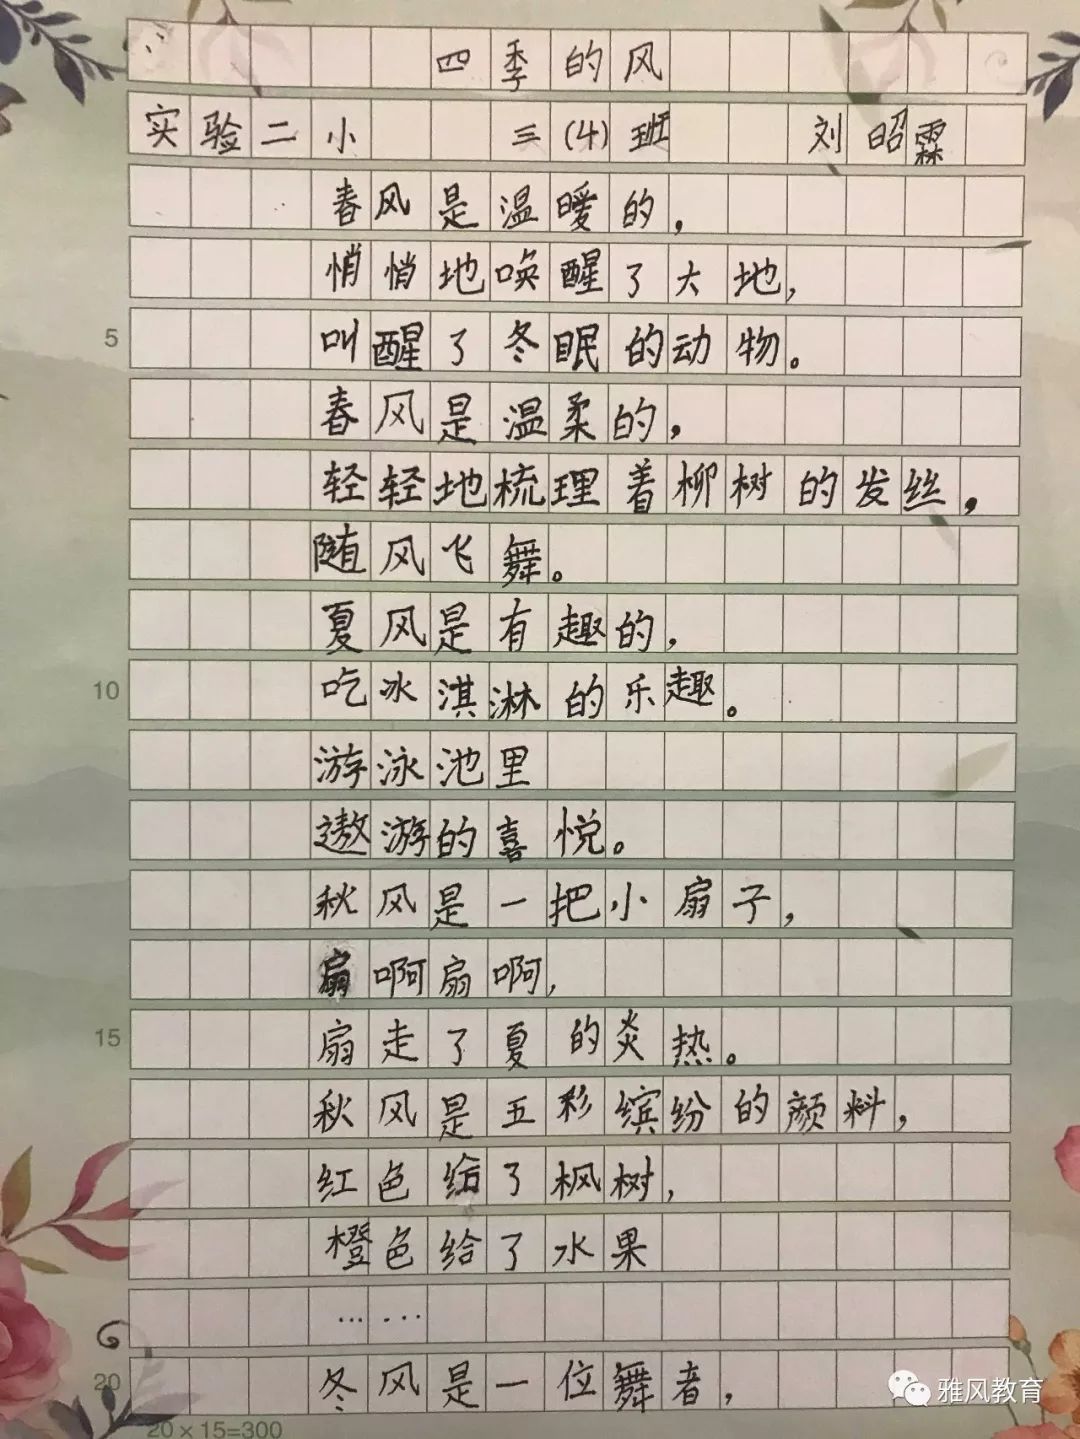 四季的风
实验二小 三(4)班 刘昭霖
春风是温暖的，
悄悄地唤醒了大地，
5 叫醒了冬眠的动物。
春风是温柔的，
轻轻地梳理着柳树的发丝，
随风飞舞。
夏风是有趣的，
10 吃冰淇淋的乐趣。
游泳池里
遨游的喜悦。
秋风是一把小扇子，
扇啊扇啊，
15 扇走了夏的炎热。
秋风是五彩缤纷的颜料，
红色给了枫树，
橙色给了水果
……
20 冬风是一位舞者，
雅风教育
20×15=300